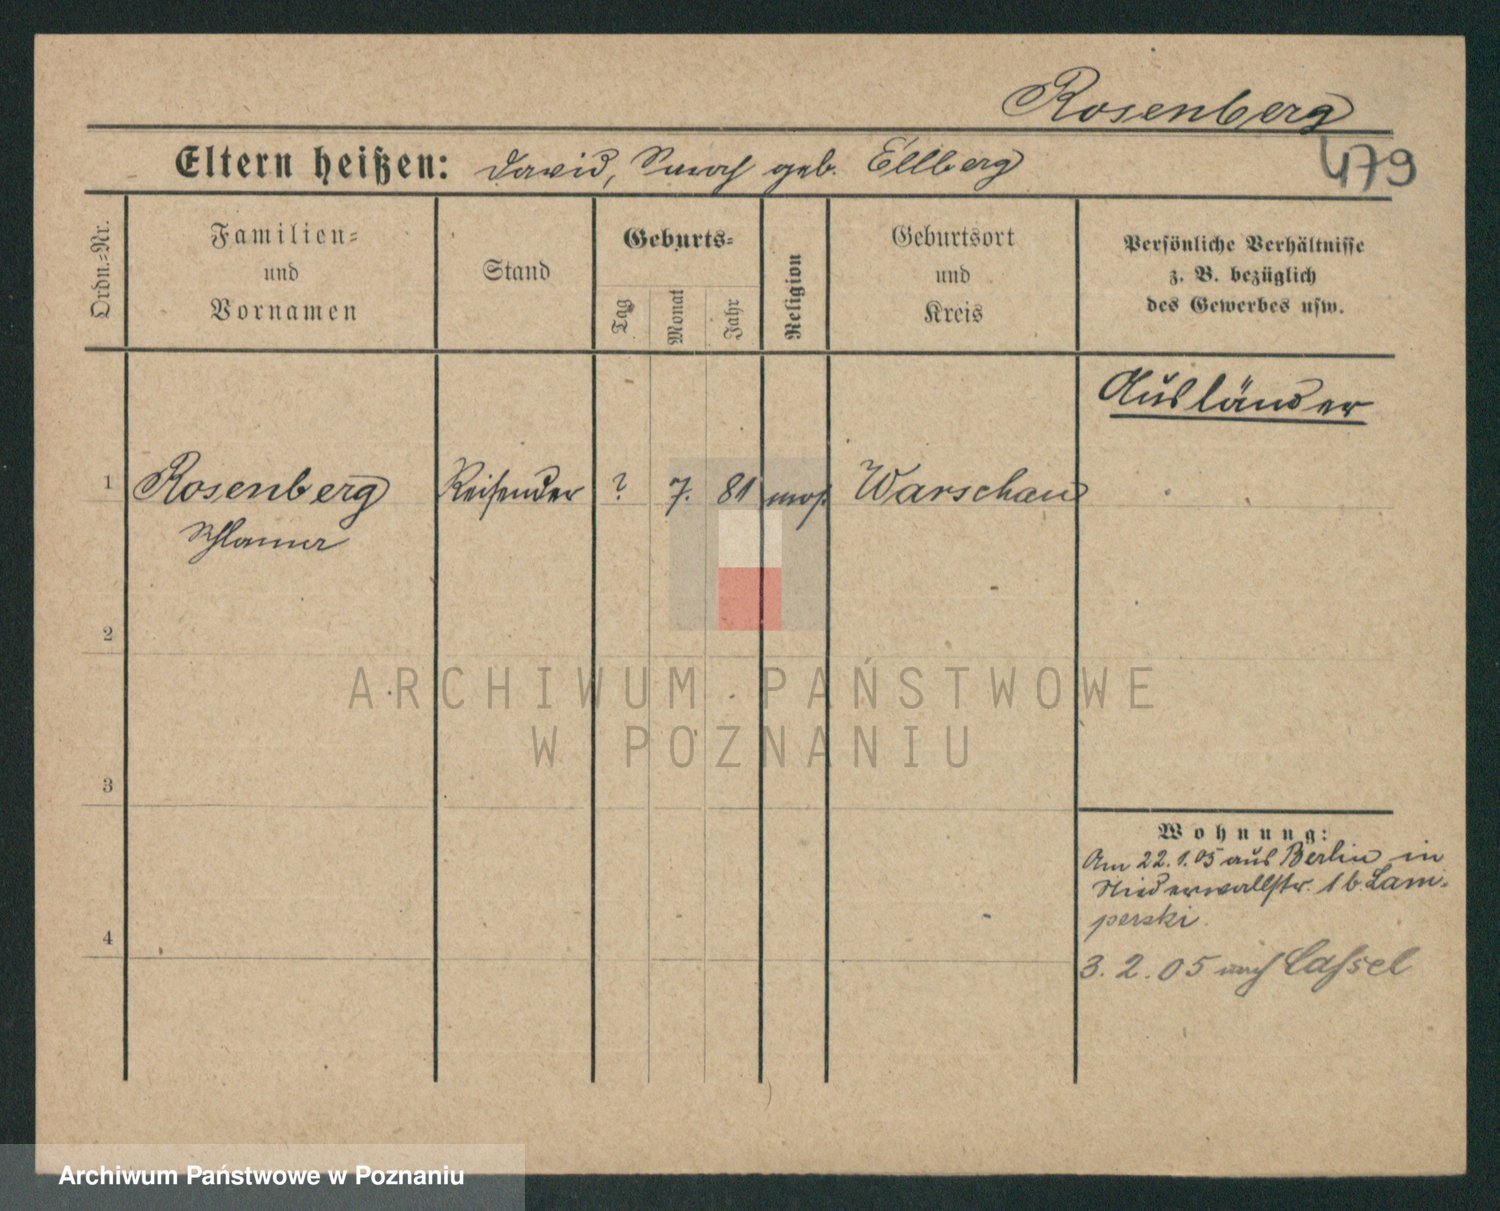 Rosenberg
479
Eltern heißen: David, geb. Ellberg
Ordn.=Nr.
Familien=
und
Vornamen
Stand
Geburts=
Tag
Monat
Jahr
Religion
Geburtsort
und
Kreis
Persönliche Verhältnisse
z. B. bezüglich
des Gewerbes usw.
Ausländer
1 Rosenberg Reisender ? 7. 81 mos. Warschau
2
3
4
Wohnung:
Am 22.1.05 aus Berlin in
Niederwallstr. 1 b. Lam-
perski.
3.2.05 nach Cassel
ARCHIWUM PAŃSTWOWE
W POZNANIU
Archiwum Państwowe w Poznaniu